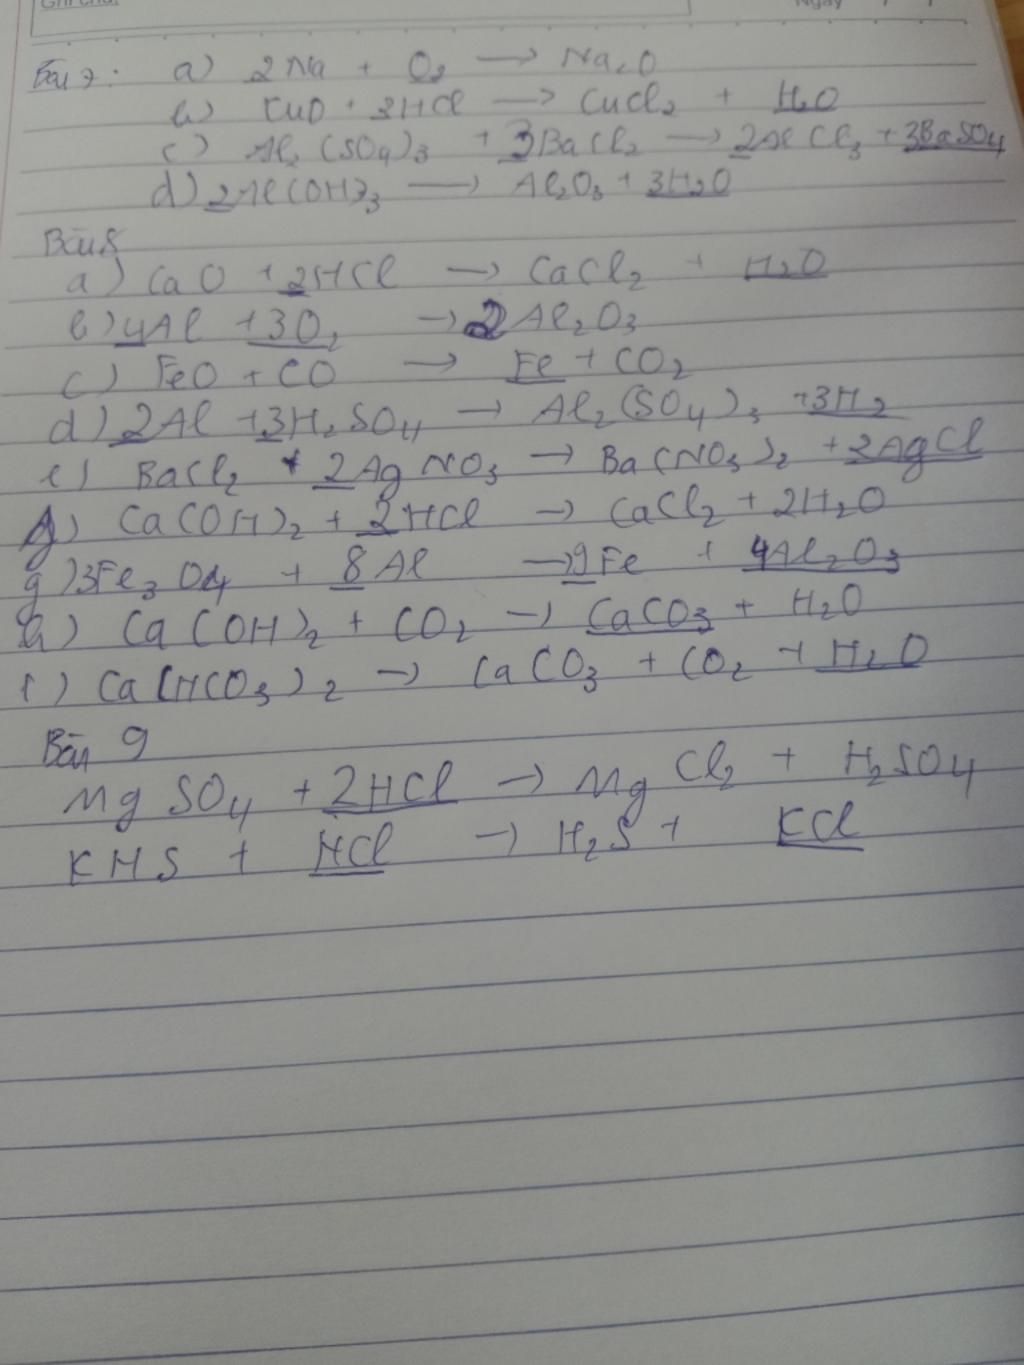 Ghi chú:
Ngày / /
Bài 7: a) 2Na + O₂ → Na₂O
b) CuO + 2HCl → CuCl₂ + H₂O
c) Al₂(SO₄)₃ + 3BaCl₂ → 2AlCl₃ + 3BaSO₄
d) 2Al(OH)₃ → Al₂O₃ + 3H₂O
Bài 8
a) CaO + 2HCl → CaCl₂ + H₂O
b) 4Al + 3O₂ → 2Al₂O₃
c) FeO + CO → Fe + CO₂
d) 2Al + 3H₂SO₄ → Al₂(SO₄)₃ + 3H₂
e) BaCl₂ + 2AgNO₃ → Ba(NO₃)₂ + 2AgCl
f) Ca(OH)₂ + 2HCl → CaCl₂ + 2H₂O
g) 3Fe₃O₄ + 8Al → 9Fe + 4Al₂O₃
h) Ca(OH)₂ + CO₂ → CaCO₃ + H₂O
i) Ca(HCO₃)₂ → CaCO₃ + CO₂ + H₂O
Bài 9
MgSO₄ + 2HCl → MgCl₂ + H₂SO₄
KHS + HCl → H₂S + KCl